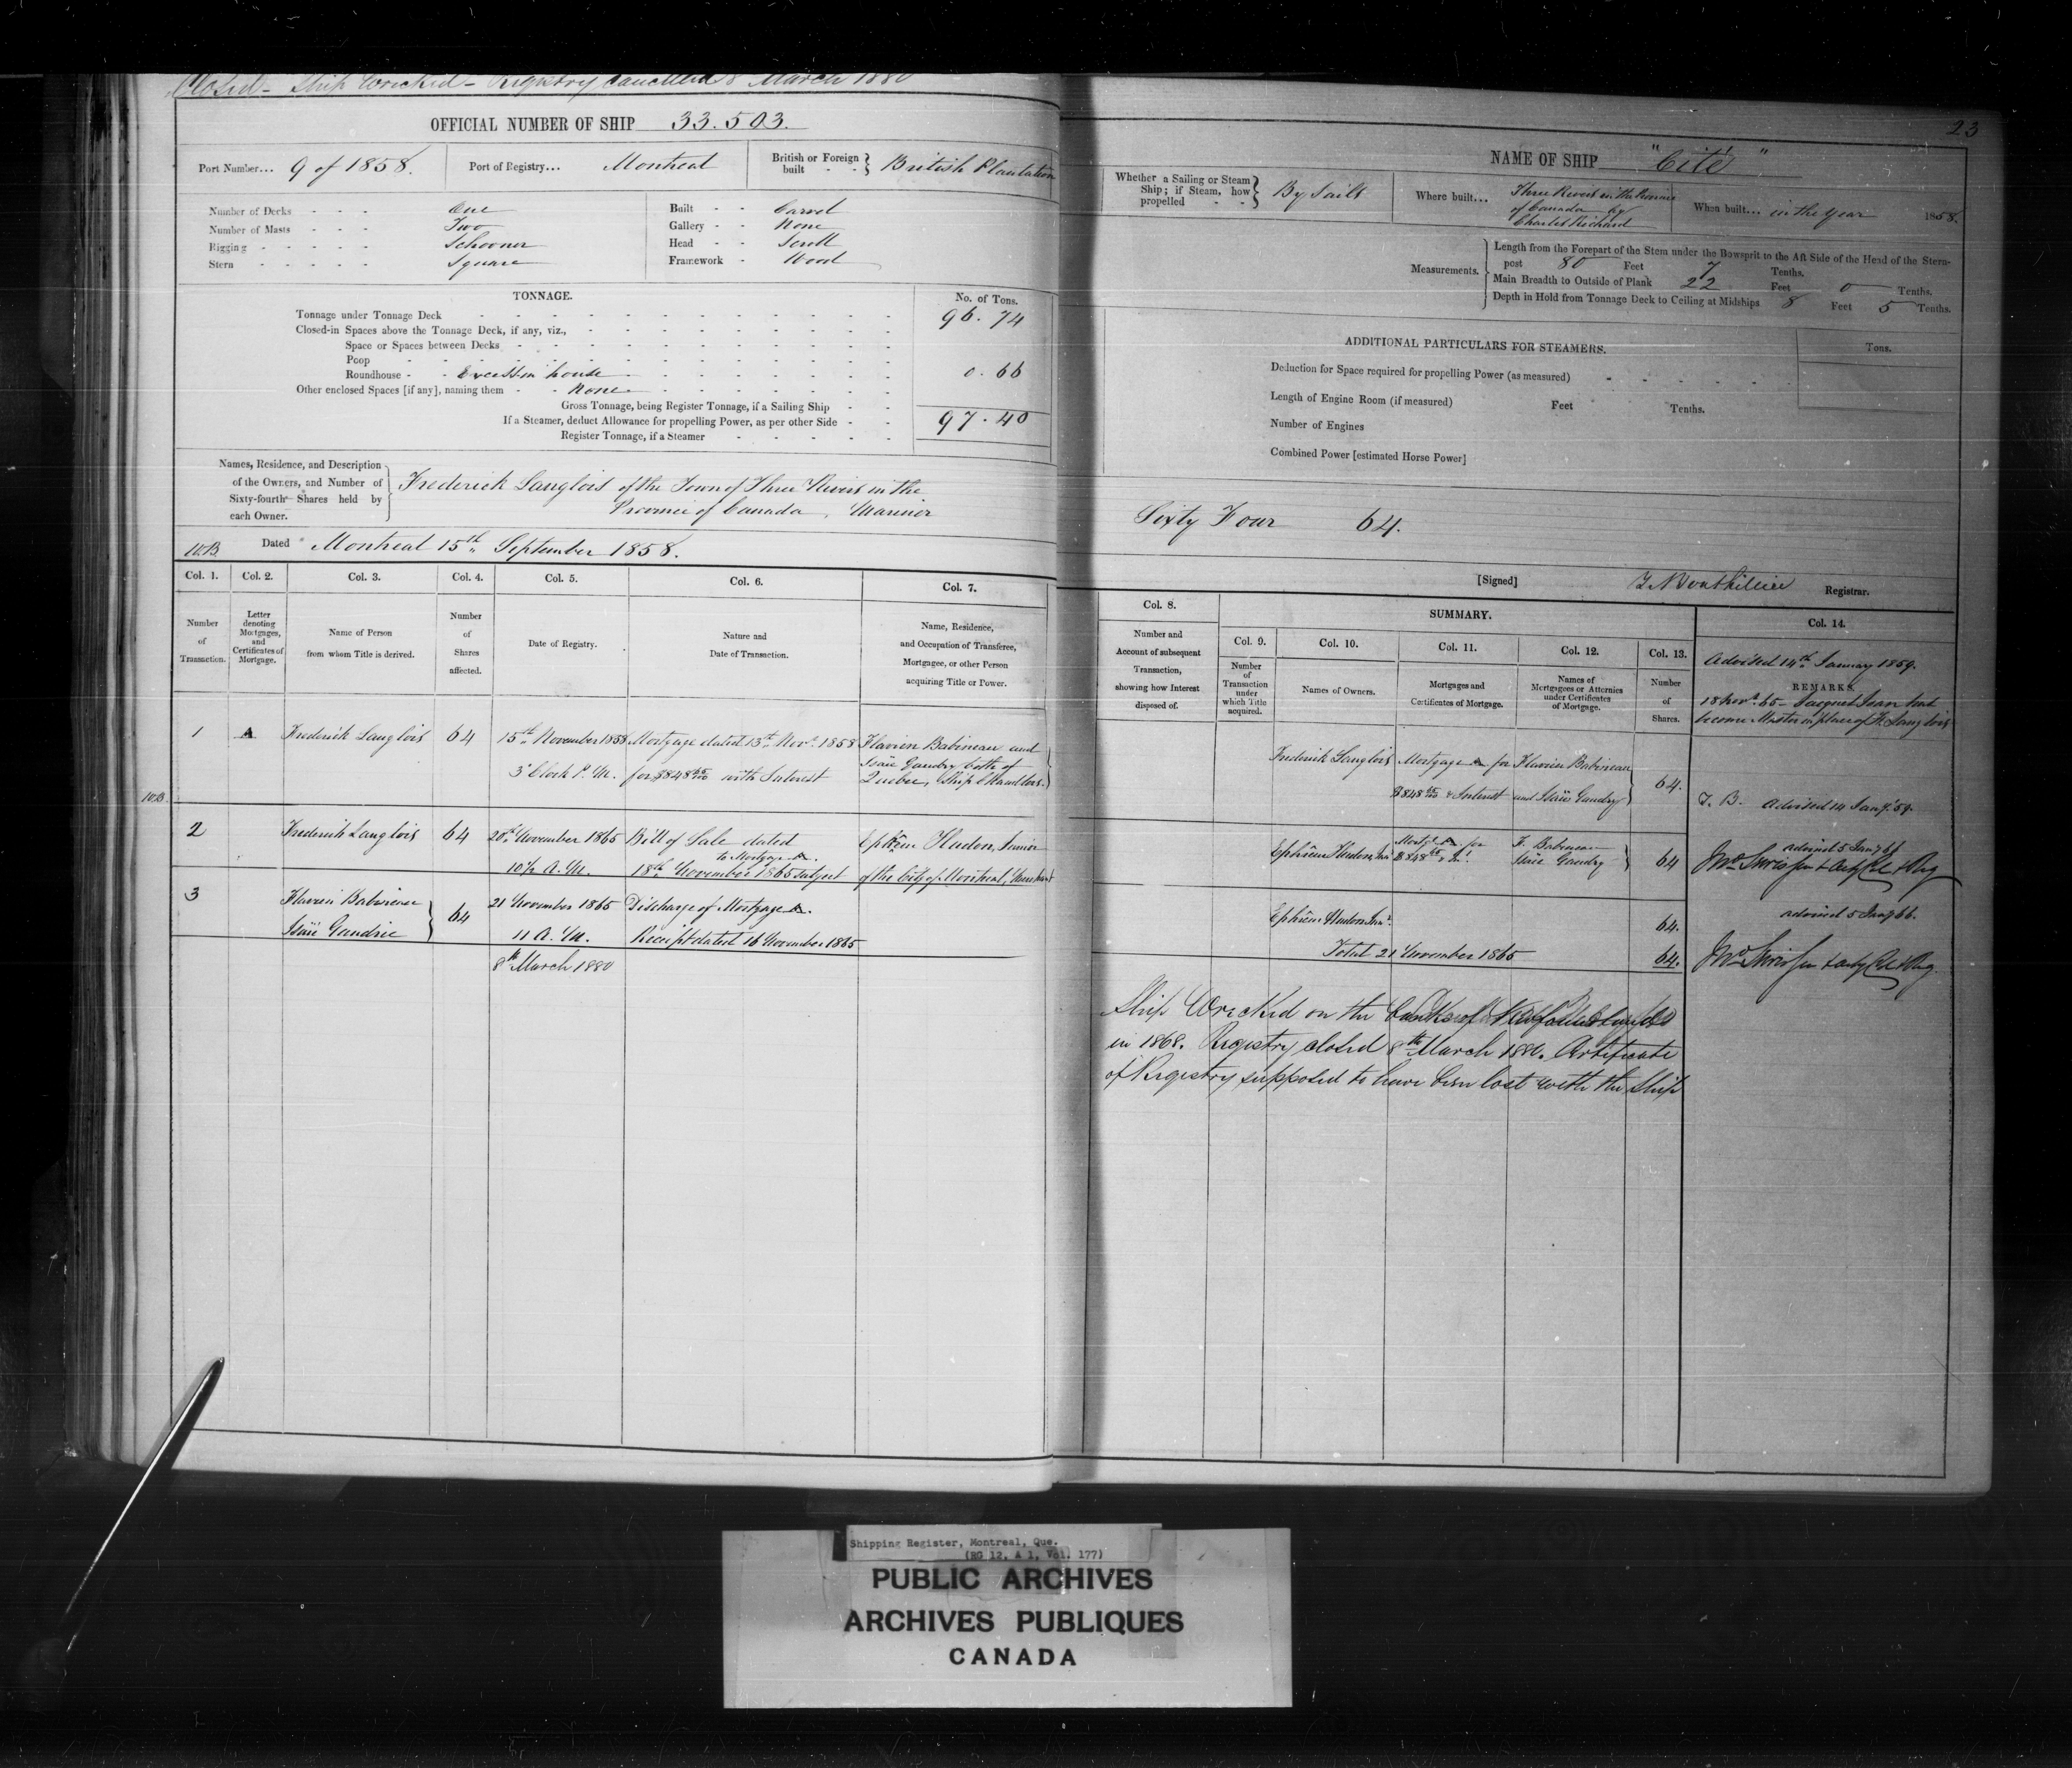 Closed - Ship Wrecked - Registry Cancelled 8 March 1880
23
OFFICIAL NUMBER OF SHIP 33.503.
Port Number... 9 of 1858.
Port of Registry... Montreal
British or Foreign built - - } British Plantation
Number of Decks - - - One
Number of Masts - - - Two
Rigging - - - - - Schooner
Stern - - - - - Square
Built - - Carvel
Gallery - - None
Head - - Scroll
Framework - Wood
TONNAGE.
No. of Tons.
Tonnage under Tonnage Deck 96.74
Closed-in Spaces above the Tonnage Deck, if any, viz.,
Space or Spaces between Decks
Poop
Roundhouse - - Excess in house 0.66
Other enclosed Spaces [if any], naming them - - None
Gross Tonnage, being Register Tonnage, if a Sailing Ship
If a Steamer, deduct Allowance for propelling Power, as per other Side 97.40
Register Tonnage, if a Steamer
Names, Residence, and Description
of the Owners, and Number of
Sixty-fourth Shares held by
each Owner.
Frederick Langlois of the Town of Three Rivers in the
Province of Canada, Mariner
10.B. Dated Montreal 15th September 1858.
NAME OF SHIP "Cité"
Whether a Sailing or Steam
Ship; if Steam, how
propelled - - } By Sails
Where built... Three Rivers in the Province
of Canada by
Charles Richard
When built... in the year 1858.
Measurements.
Length from the Forepart of the Stem under the Bowsprit to the Aft Side of the Head of the Stern-
post 80 Feet 7 Tenths.
Main Breadth to Outside of Plank 22 Feet 0 Tenths.
Depth in Hold from Tonnage Deck to Ceiling at Midships 8 Feet 5 Tenths.
ADDITIONAL PARTICULARS FOR STEAMERS.
Tons.
Deduction for Space required for propelling Power (as measured)
Length of Engine Room (if measured) Feet Tenths.
Number of Engines
Combined Power [estimated Horse Power]
Sixty Four 64.
[Signed] Registrar.
Col. 1. Col. 2. Col. 3. Col. 4. Col. 5. Col. 6. Col. 7.
Number of Transaction.
Letter denoting Mortgages, and Certificates of Mortgage.
Name of Person from whom Title is derived.
Number of Shares affected.
Date of Registry.
Nature and Date of Transaction.
Name, Residence, and Occupation of Transferee, Mortgagee, or other Person acquiring Title or Power.
1 A Frederick Langlois 64 15th November 1858 Mortgage dated 13th Novr. 1858 Flavien Babineau and
3 o'clock P.M. for $848 with Interest Isaïe Gaudry both of
Quebec, Ship Chandlers.
10.B.
2 Frederick Langlois 64 20th November 1865 Bill of Sale dated Ephrem Hudon, Junior
to Mortgage A.
10½ A.M. 18th November 1865 subject of the City of Montreal, Merchant
3 Flavien Babineau 21 November 1865 Discharge of Mortgage A.
Isaïe Gaudrie } 64 11 A.M. Receipt dated 16 November 1865
8th March 1880
Col. 8.
Number and Account of subsequent Transaction, showing how Interest disposed of.
SUMMARY.
Col. 9. Col. 10. Col. 11. Col. 12. Col. 13. Col. 14.
Number of Transaction under which Title acquired.
Names of Owners.
Mortgages and Certificates of Mortgage.
Names of Mortgagees or Attornies under Certificates of Mortgage.
Number of Shares.
Advised 14th January 1859.
REMARKS.
18 Novr. 65 -
become Master in place of F. Langlois
Frederick Langlois Mortgage A for Flavien Babineau
$848 & Interest and Isaïe Gaudry } 64.
Advised 14 Jany. 59.
Ephrêm Hudon Jnr Mortge A for F. Babineau
$848 Isaïe Gaudry } 64
advised 5 Jany 66
Ephrêm Hudon Junr. 64.
advised 5 Jany 66.
Total 21 November 1865 64.
Ship Wrecked on the banks of Newfoundland
in 1868. Registry closed 8th March 1880. Certificate
of Registry supposed to have been lost with the Ship
Shipping Register, Montreal, Que.
(RG 12, A 1, Vol. 177)
PUBLIC ARCHIVES
ARCHIVES PUBLIQUES
CANADA